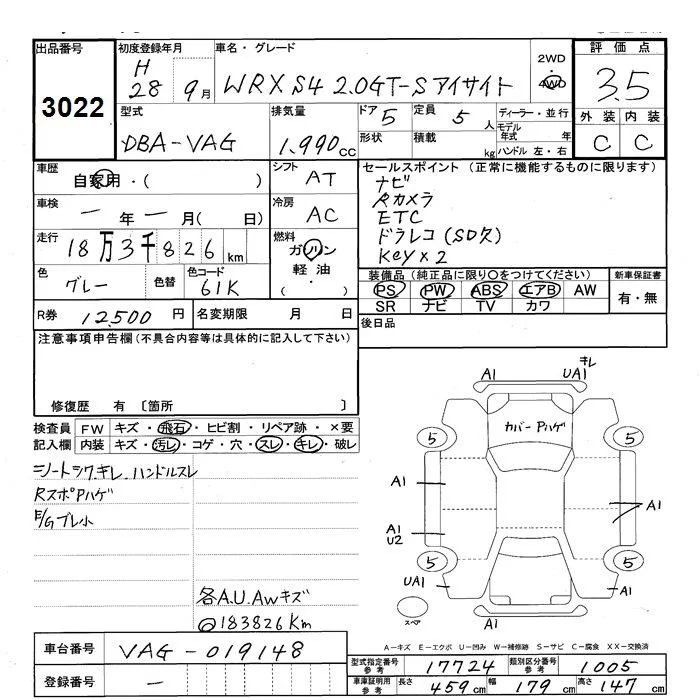 出品番号
3022
初度登録年月
H
28 9月
車名・グレード
WRX S4 2.0GT-Sアイサイト
2WD
4WD
評価点
3.5
外装 内装
C C
型式
DBA-VAG
排気量
1,990cc
ドア 5
形状
定員 5人
積載 kg
ディーラー・並行
モデル年式 年
ハンドル 左・右
車歴
自家用・( )
シフト
AT
車検
一年一月( 日)
冷房
AC
走行
18万3千826km
燃料
ガソリン
軽油・
( )
色
グレー
色替
色コード
61K
R券 12,500円
名変期限 月 日
セールスポイント(正常に機能するものに限ります)
ナビ
Rカメラ
ETC
ドラレコ(SD欠)
Key×2
装備品(純正品に限り○をつけてください)
PS PW ABS エアB AW
SR ナビ TV カワ
新車保証書
有・無
後日品
注意事項申告欄(不具合内容等は具体的に記入して下さい)
修復歴 有 〔箇所 〕
検査員記入欄
FW キズ・飛石・ヒビ割・リペア跡・×要
内装 キズ・汚レ・コゲ・穴・スレ・キレ・破レ
シートシワ.キレ.ハンドルスレ
RスポPハゲ
E/Gブレ小
各A.U.AWキズ
@183826Km
車台番号 VAG-019148
登録番号 一
キレ
A1 UA1
カバーPハゲ
5 5
A1
A1
A1
U2
5 5
UA1 A1
スペア
A1
A-キズ E-エクボ U-凹み W-補修跡 S-サビ C-腐食 XX-交換済
型式指定番号 参考 17724
類別区分番号 参考 1005
車庫証明用 参考 長さ 459cm 幅 179cm 高さ 147cm